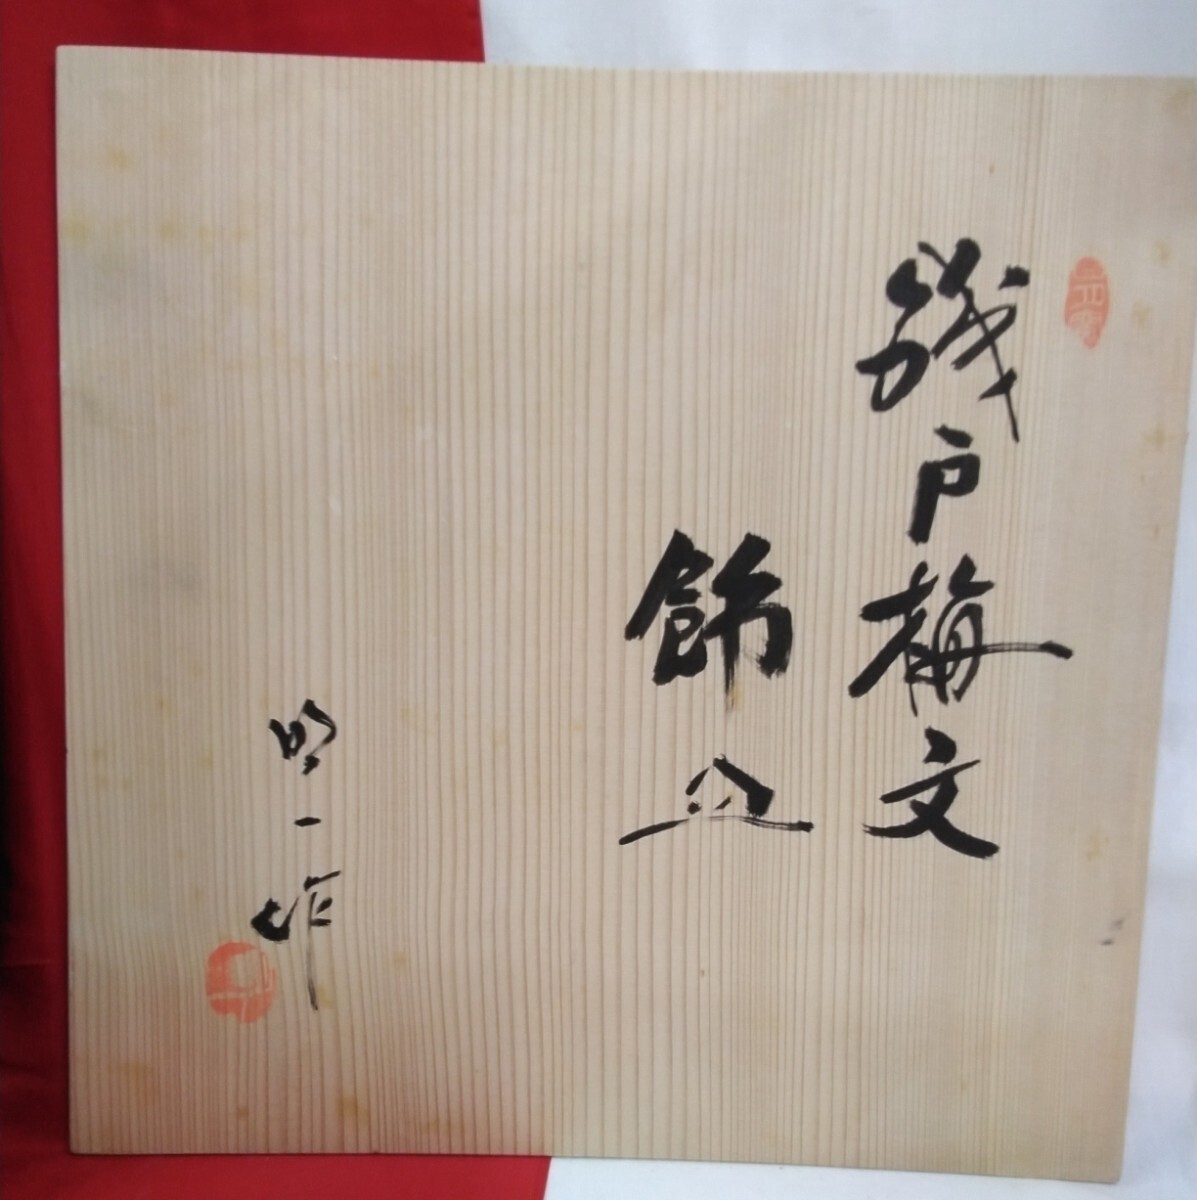 磯戸梅文
飾皿
明一作